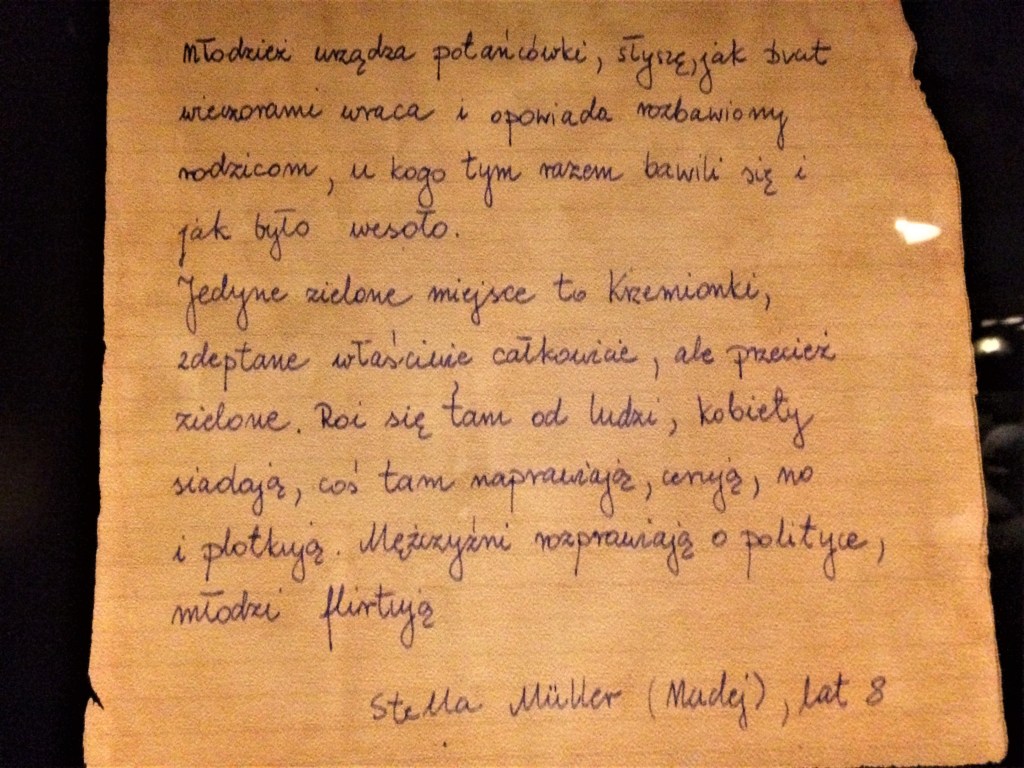 Młodzież urządza potańcówki, słyszę, jak brat
wieczorami wraca i opowiada rozbawiony
rodzicom, u kogo tym razem bawili się i
jak było wesoło.
Jedyne zielone miejsce to Krzemionki,
zdeptane właściwie całkowicie, ale przecież
zielone. Roi się tam od ludzi, kobiety
siadają, coś tam naprawiają, cerują, no
i plotkują. Mężczyźni rozprawiają o polityce,
młodzi flirtują
Stella Müller (Madej), lat 8